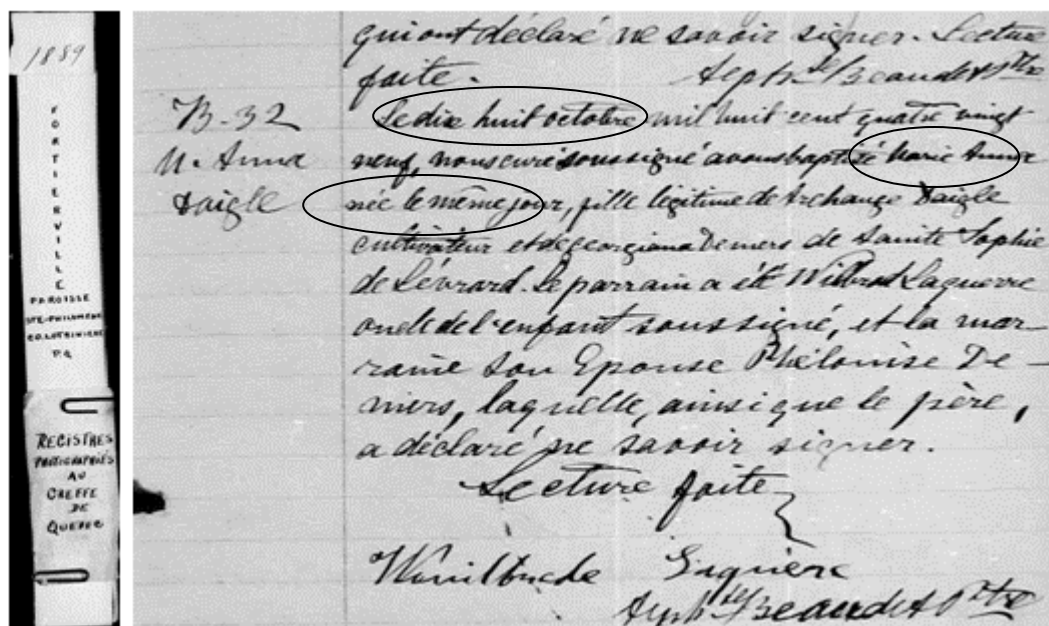 1889
FORTIERVILLE
PAROISSE
STE-PHILOMENE
CO. LOTBINIERE
P.Q
REGISTRES
PHOTOGRAPHIÉS
AU
GREFFE
DE
QUEBEC
qui ont déclaré ne savoir signer. Lecture
faite. Beaudet Ptre
B-32
M. Anna
Daigle
Le dix huit octobre mil huit cent quatre vingt
neuf, nous curé soussigné avons baptisé Marie Anna
née le même jour, fille légitime de Archange Daigle
cultivateur et de Georgiana Demers de Sainte Sophie
de Lévrard. Le parrain a été Wilbrod Laquerre
oncle de l'enfant soussigné, et la mar-
raine son Epouse Phélonise De-
mers, laquelle, ainsi que le père,
a déclaré ne savoir signer.
Lecture faite
Beaudet Ptre